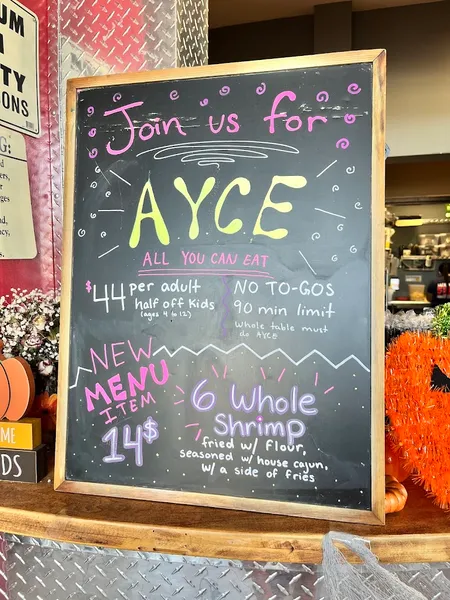 UM
TY
IONS
G:
Join us for
AYCE
ALL YOU CAN EAT
$44 per adult
half off kids
(ages 4 to 12)
NO TO-GOS
90 min limit
Whole table must
do AYCE
NEW
MENU
ITEM
14$
6 Whole
Shrimp
fried w/ flour,
seasoned w/ house cajun,
w/ a side of fries
ME
DS